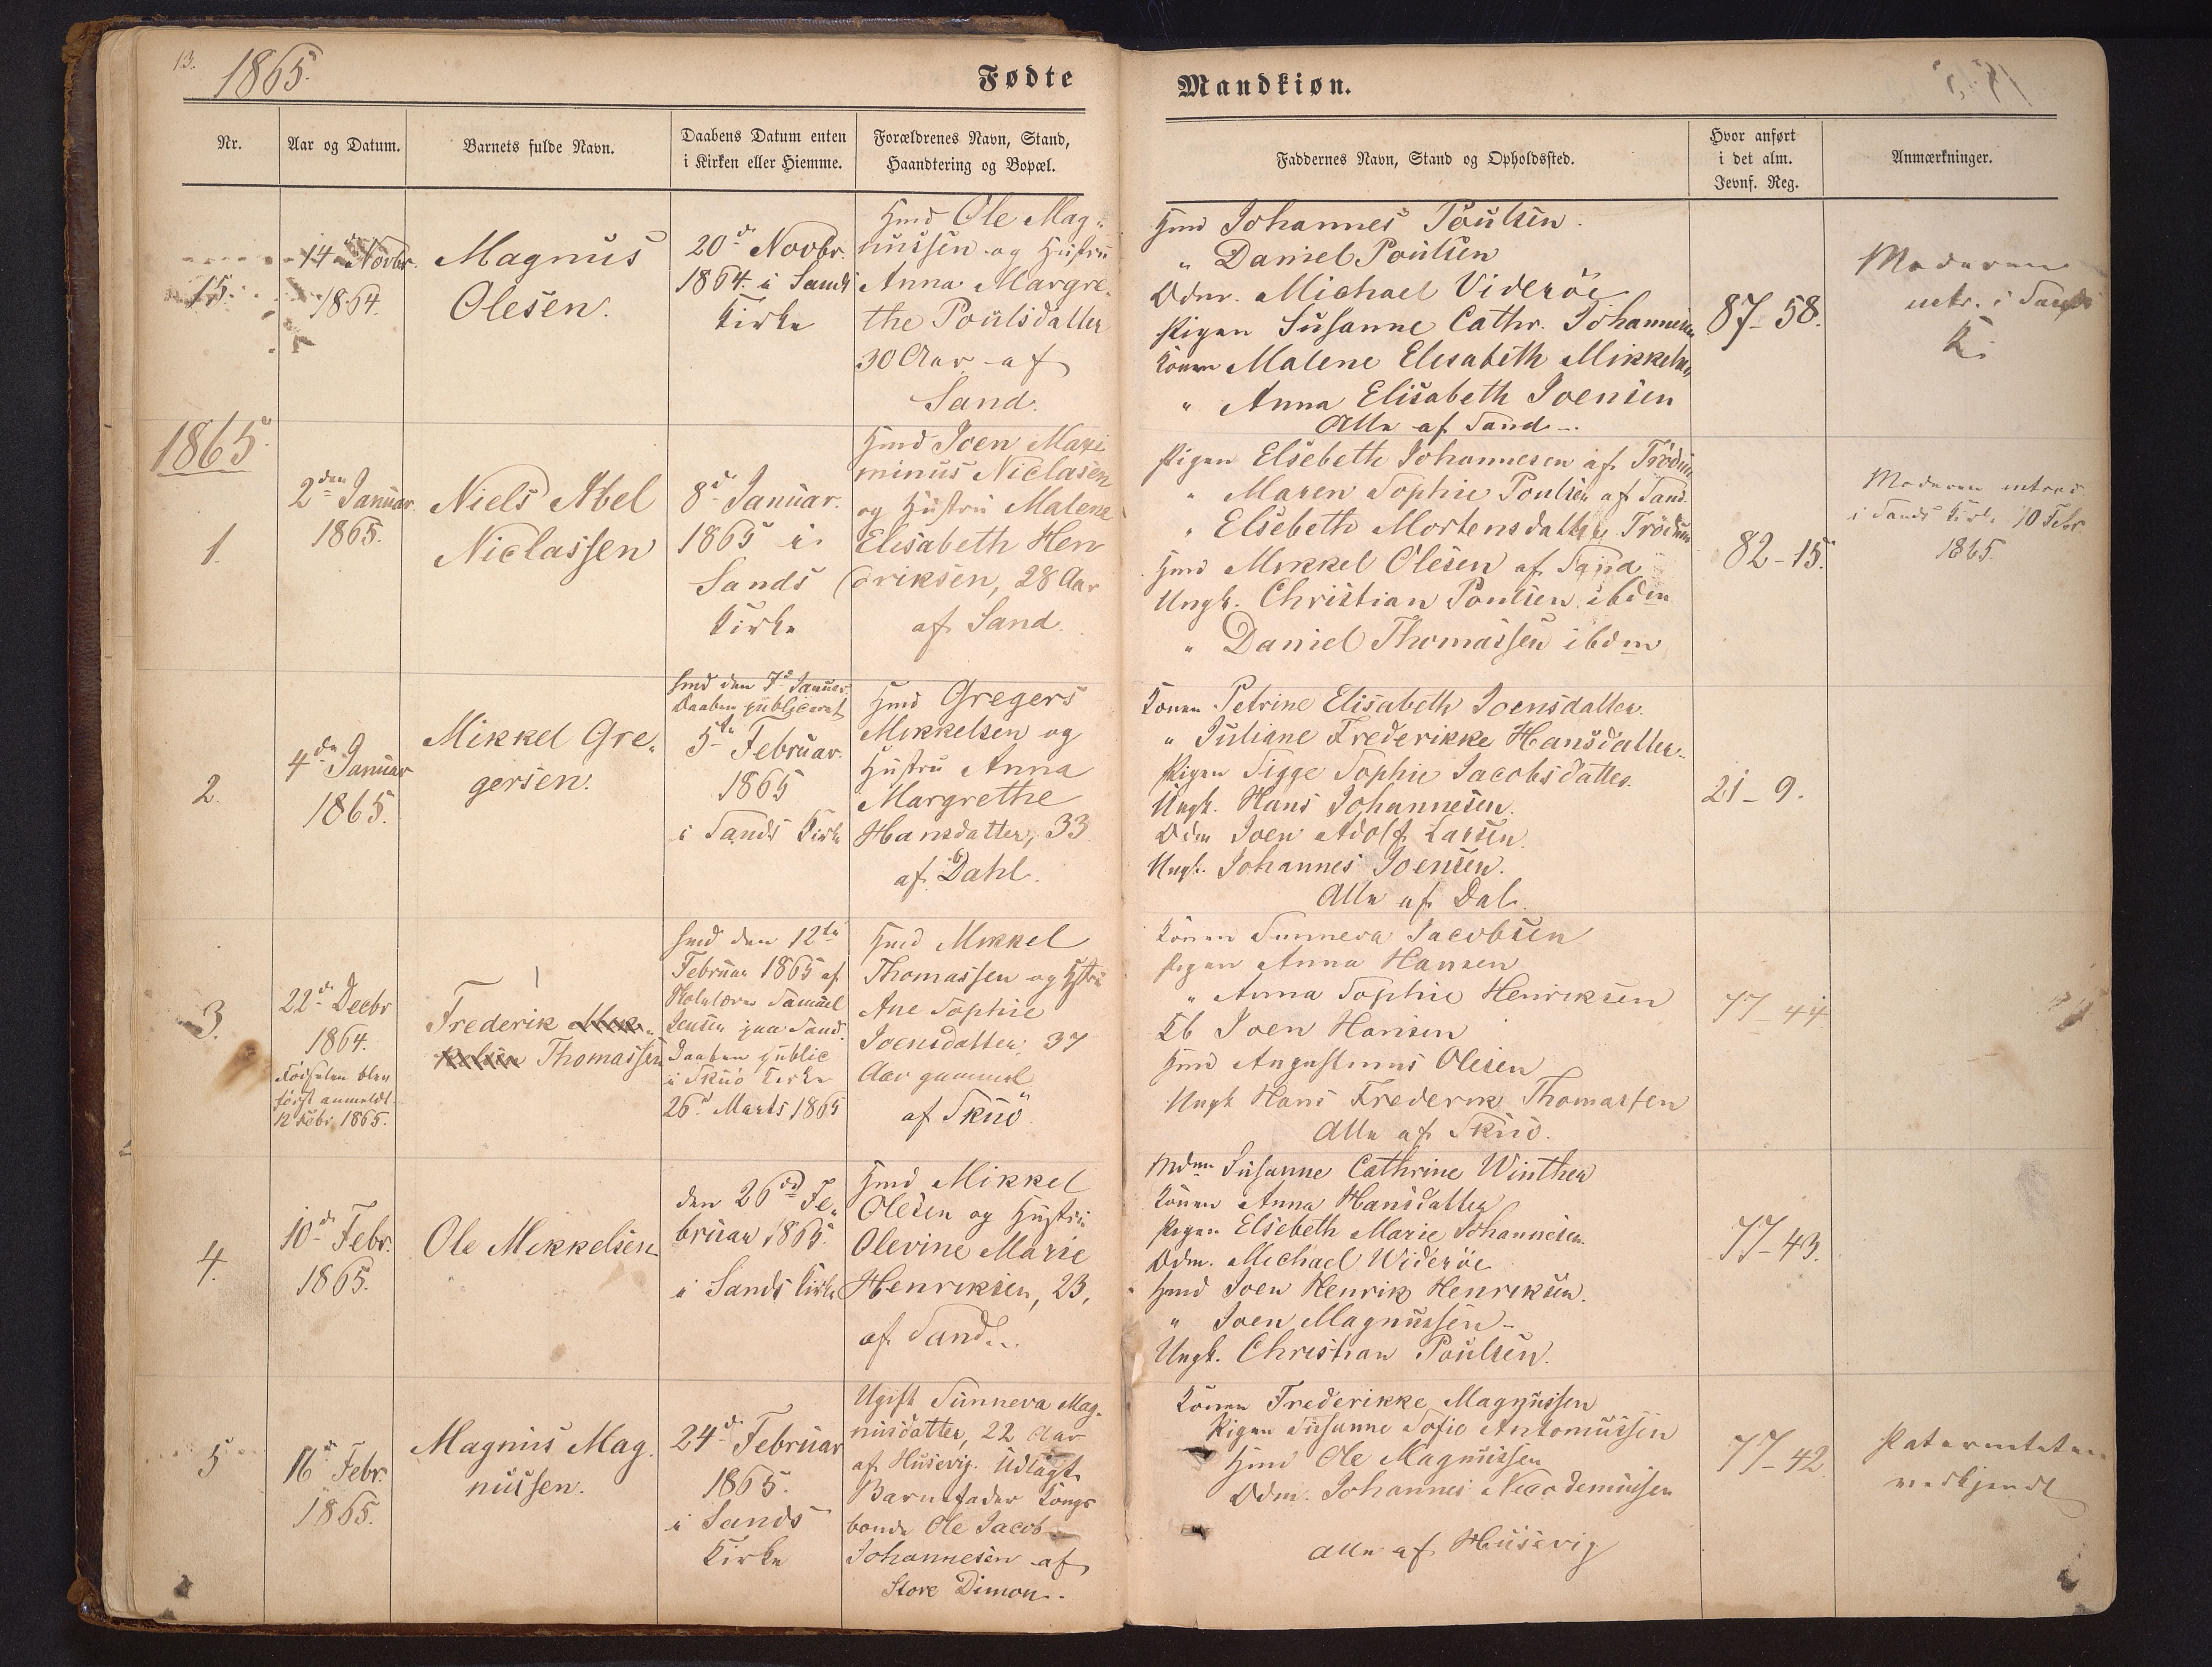 13.
1865.
Fødte
Mandkiøn.
Nr.
Aar og Datum.
Barnets fulde Navn.
Daabens Datum enten
i Kirken eller Hiemme.
Forældrenes Navn, Stand,
Haandtering og Bopæl.
Faddernes Navn, Stand og Opholdssted.
Hvor anført
i det alm.
Jevnf. Reg.
Anmærkninger.
15.
14 Novbr.
1864.
Magnus
Olesen.
20d Novbr.
1864. i Sands
Kirke
Hmd Ole Mag-
nussen og Hustru
Anna Margre-
the Poulsdatter
30 Aar af
Sand.
Hmd Johannes Poulsen.
" Daniel Poulsen
Odm. Michael Videröe
Pigen Susanne Cathr. Johannesen
Konen Malene Elisabeth Mikkelsen
" Anna Elisabeth Joensen
Alle af Sand.
87-58.
Moderen
intr. i Sands
K.
1865.
1.
2den Januar.
1865.
Niels Abel
Niclassen
8d Januar.
1865 i
Sands
Kirke
Hmd Joen Maxi
minus Niclasen
og Hustru Malene
Elisabeth Hen
driksen, 28 Aar
af Sand.
Pigen Elsebeth Johannesen af Trödum
" Maren Sophie Poulsen af Sand.
" Elsebeth Mortensdatter Trödum
Hmd Mikkel Olesen af Sand
Ungk. Christian Poulsen ibdm
" Daniel Thomassen ibdm
82-15.
Moderen introd.
i Sands Kirke 10 Febr.
1865.
2.
4de Januar
1865.
Mikkel Gre-
gersen.
hmd den 7d Januar.
Daaben publiceret
5te Februar.
1865
i Sands Kirke
Hmd Gregers
Mikkelsen og
Hustru Anna
Margrethe
Hansdatter, 33
af Dahl.
Konen Petrine Elisabeth Joensdatter.
" Juliane Frederikke Hansdatter.
Pigen Sigge Sophie Jacobsdatter.
Ungk. Hans Johannesen.
Odm Joen Adolf Larsen.
Ungk. Johannes Joensen.
Alle af Dal.
21-9.
3.
22d Decbr
1864.
Fødselen blev
først anmeldt
12 Febr. 1865.
Frederik
Thomassen
hmd den 12te
Februar 1865 af
Skolelærer Samuel
Jensen paa Sand.
Daaben public
i Skuö Kirke
26d Marts 1865
Hmd Mikkel
Thomassen og Hstru
Ane Sophie
Joensdatter, 37
Aar gammel
af Skuö
Konen Sunneva Jacobsen
Pigen Anna Hansen
" Anna Sophie Henriksen
Kb Joen Hansen
Hmd Augustinus Olesen
Ungk Hans Frederik Thomassen
Alle af Skuö.
77-44.
4.
10d Febr.
1865.
Ole Mikkelsen
den 26d Fe-
bruar 1865.
i Sands Kirke
Hmd Mikkel
Olesen og Hustru
Olevine Marie
Henriksen, 23,
af Sand.
Mdm Susanne Cathrine Winther
Konen Anna Hansdatter
Pigen Elsebeth Marie Johannesen.
Odm. Michael Wideröe
Hmd Joen Henrik Henriksen.
" Joen Magnussen
Ungk. Christian Poulsen.
77-43.
5
16d Febr.
1865.
Magnus Mag.
nussen.
24d Februar
1865.
i Sands
Kirke
Ugift Sunneva Mag-
nusdatter, 22 Aar
af Husevig. Udlagt
Barnefader Kongs
bonde Ole Jacob
Johannesen af
Store Dimon.
Konen Frederikke Magnussen
Pigen Susanne Sofie Antoniussen
Hmd Ole Magnussen
Odm. Johannes Nicodemussen
Alle af Husevig
77-42.
Paterniteten
vedkjendt